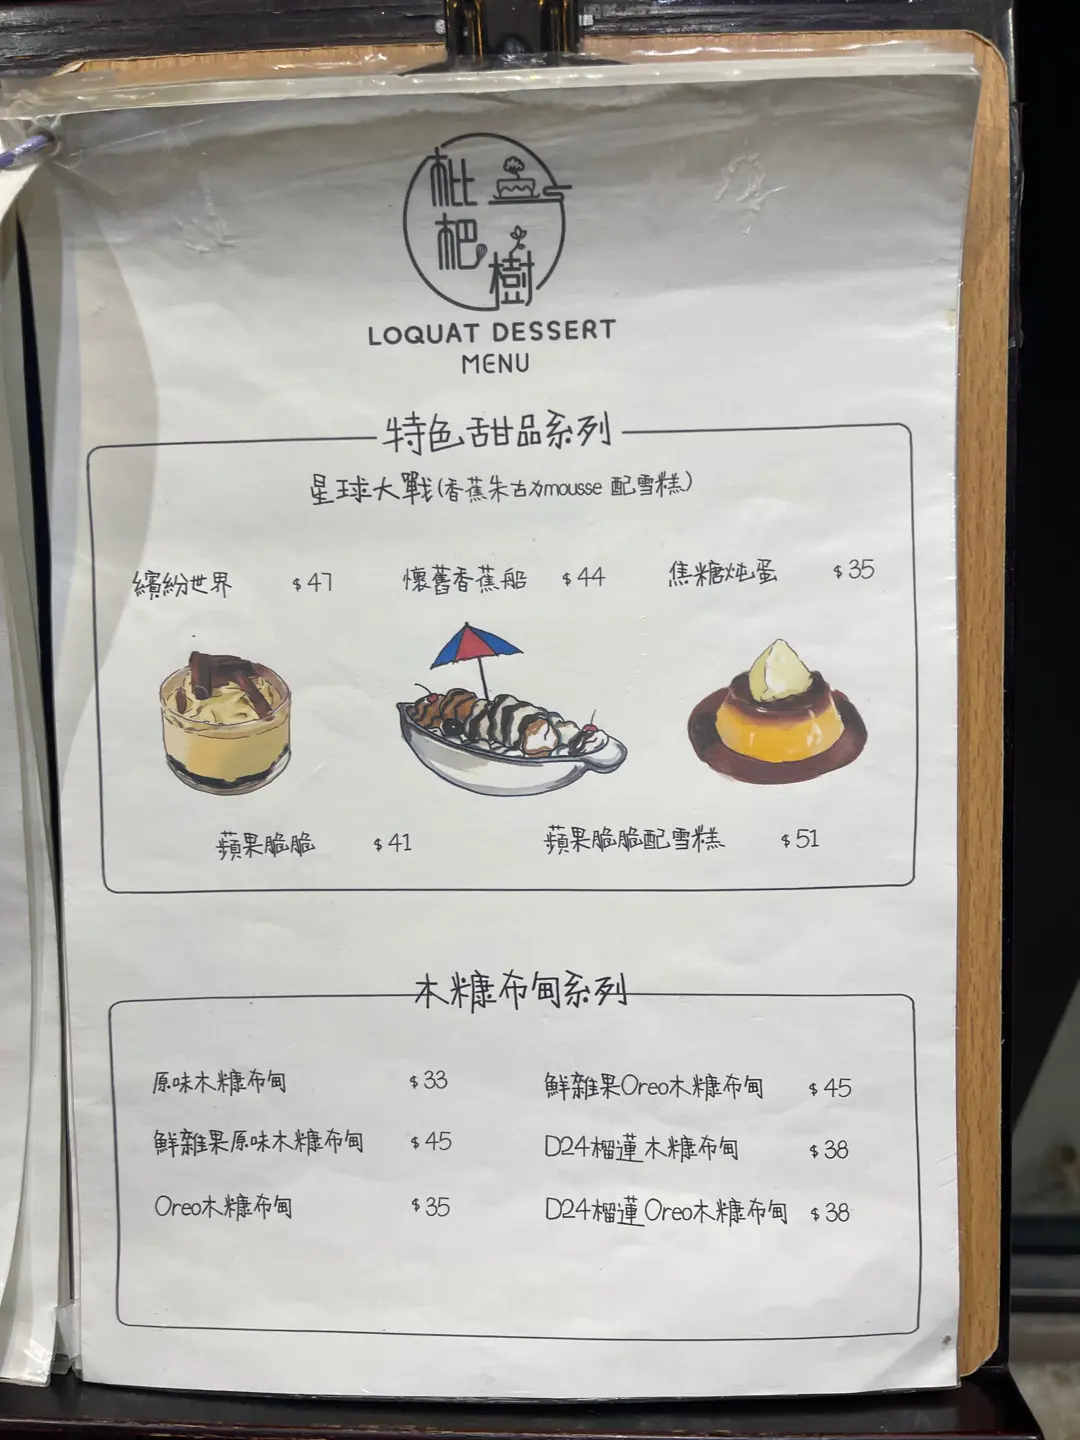 枇杷樹
LOQUAT DESSERT
MENU
特色甜品系列
星球大戰(香蕉朱古力mousse 配雪糕)
繽紛世界 $47 懷舊香蕉船 $44 焦糖炖蛋 $35
蘋果脆脆 $41 蘋果脆脆配雪糕 $51
木糠布甸系列
原味木糠布甸 $33 鮮雜果Oreo木糠布甸 $45
鮮雜果原味木糠布甸 $45 D24榴蓮木糠布甸 $38
Oreo木糠布甸 $35 D24榴蓮Oreo木糠布甸 $38